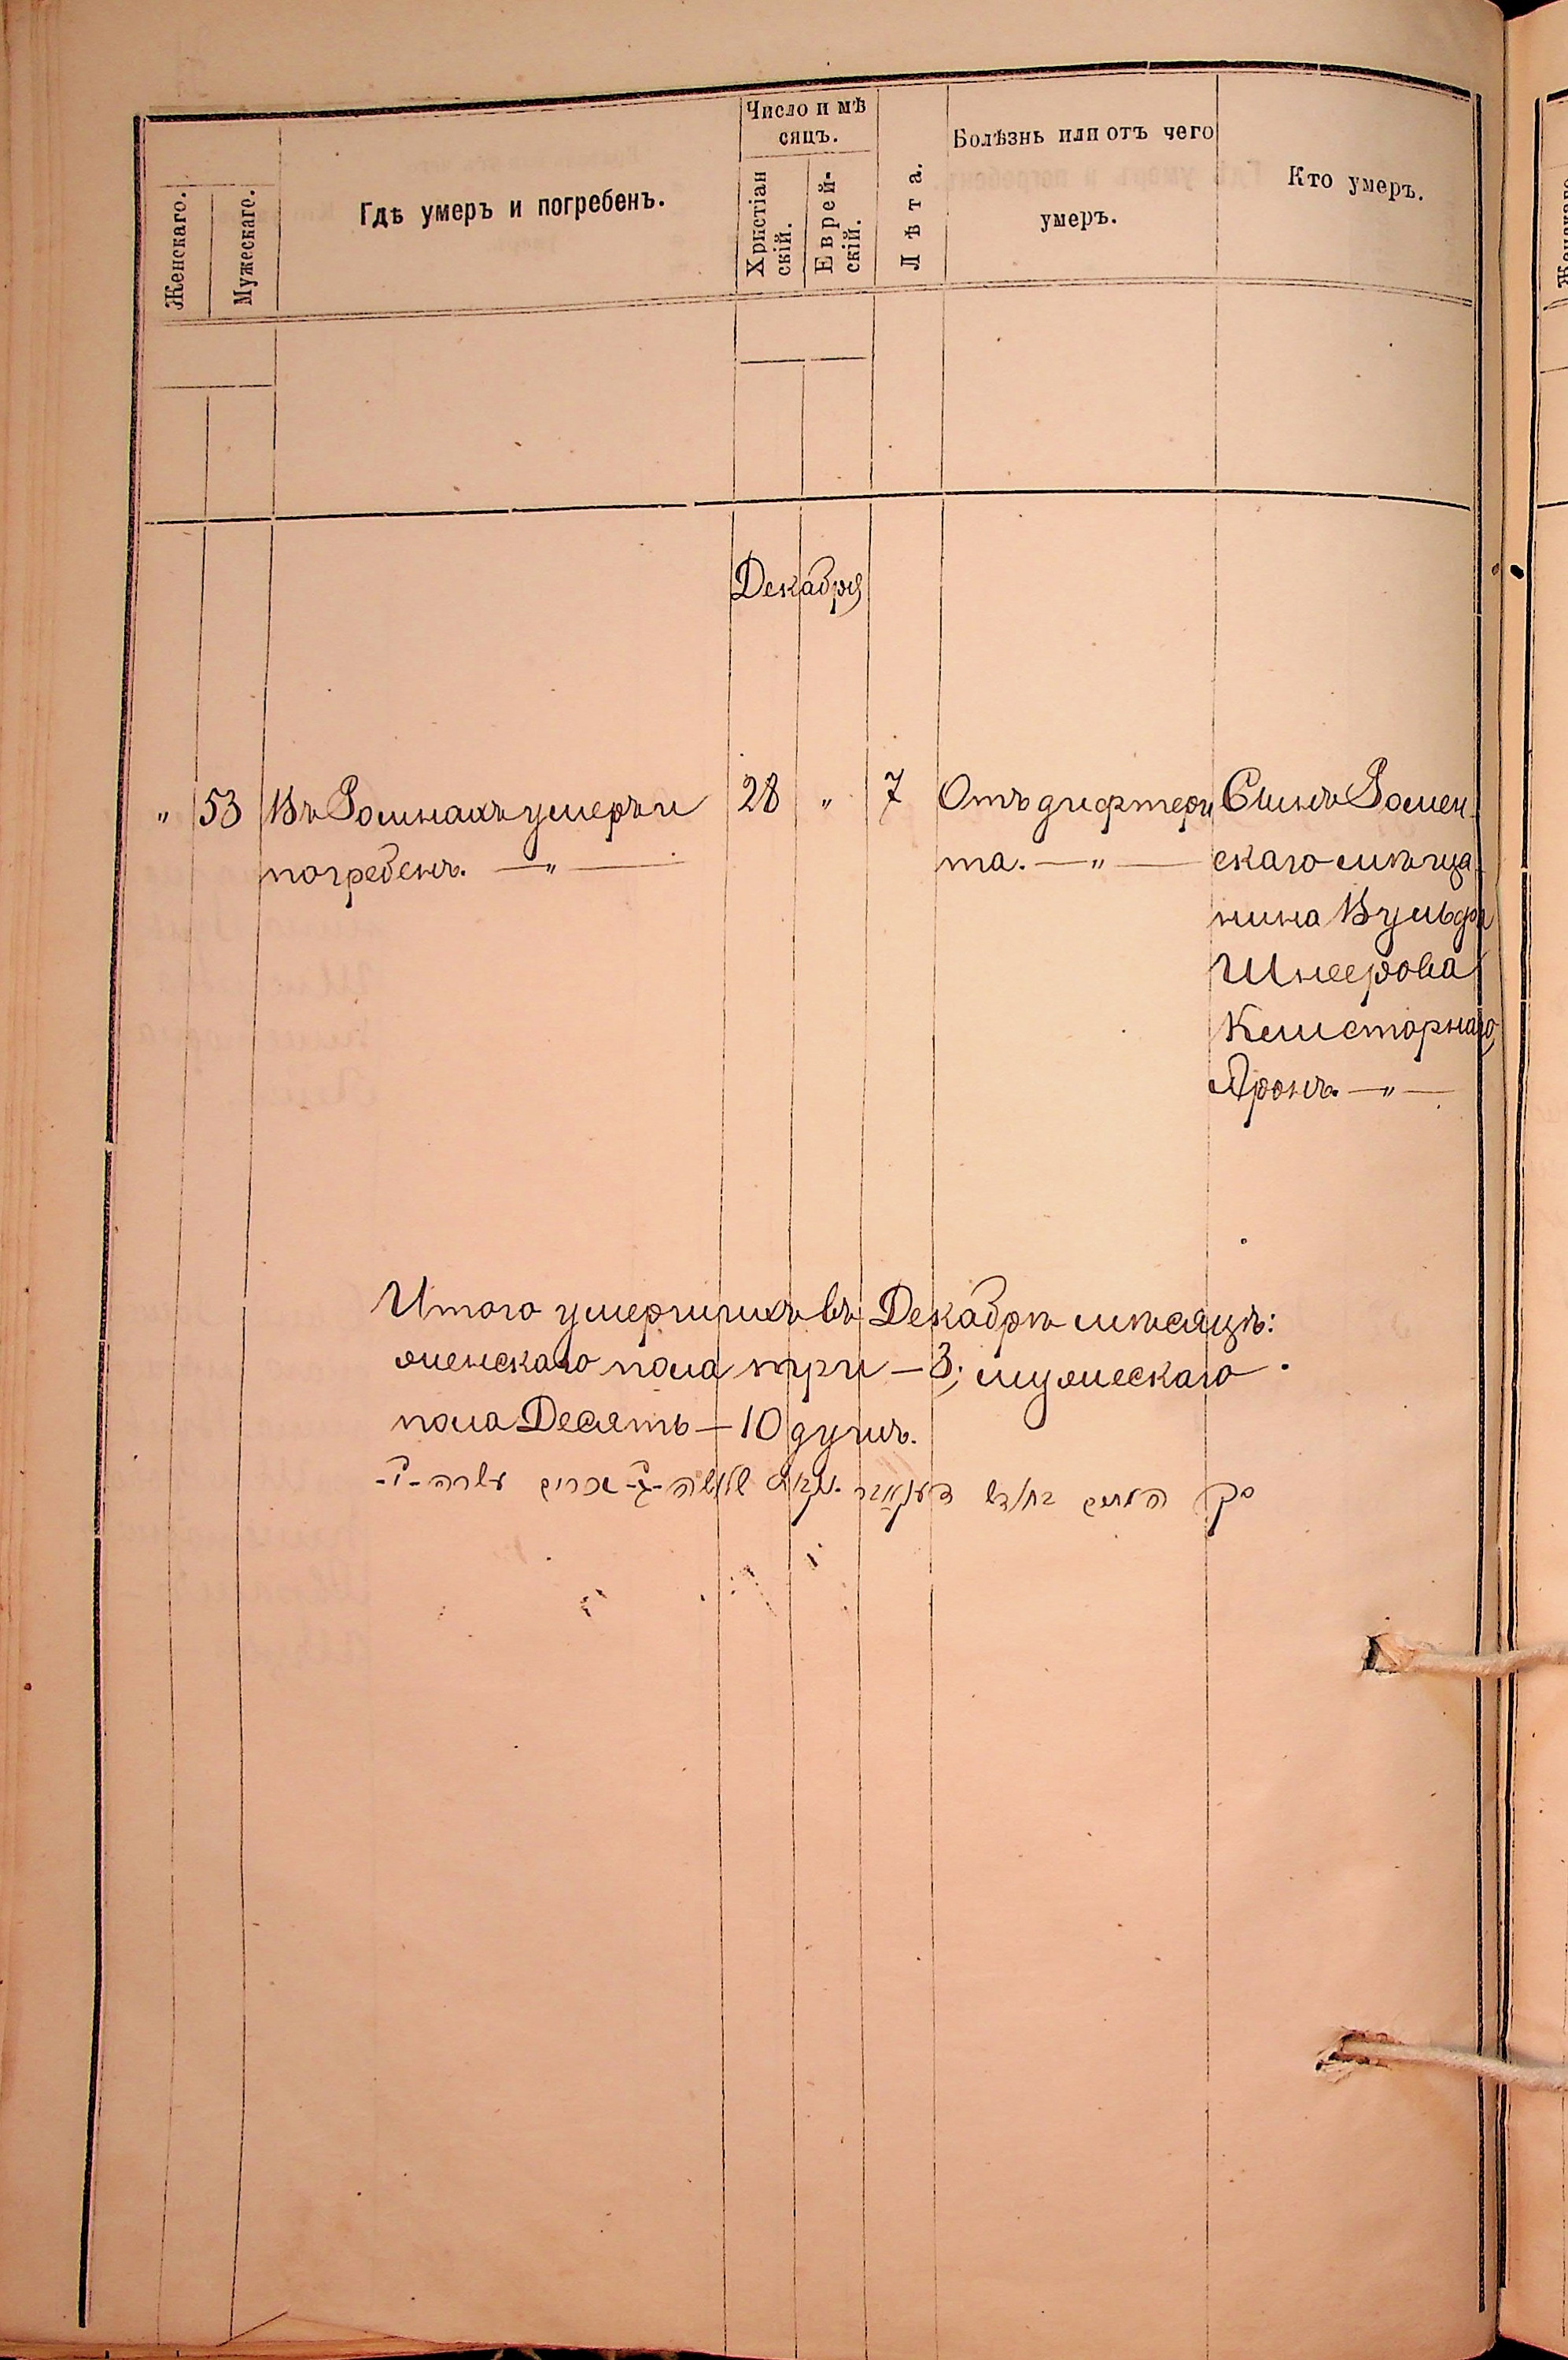 Женскаго.
Мужескаго.
Гдѣ умеръ и погребенъ.
Число и мѣ
сяцъ.
Христіан
скій.
Еврей-
скій.
Лѣта.
Болѣзнь или отъ чего
умеръ.
Кто умеръ.
Декабря
" 53 Въ Ромнахъ умеръ и
погребенъ. — " —
28 " 7
Отъ дифтери
та. — " —
Сынъ Ромен-
скаго мѣща-
нина Вульфа
Шнеерова
Кешторнаго
Аронъ. — " —
Итого умершихъ въ Декабрѣ мѣсяцѣ:
женскаго пола три — 3; мужескаго
пола Десять — 10 душъ.